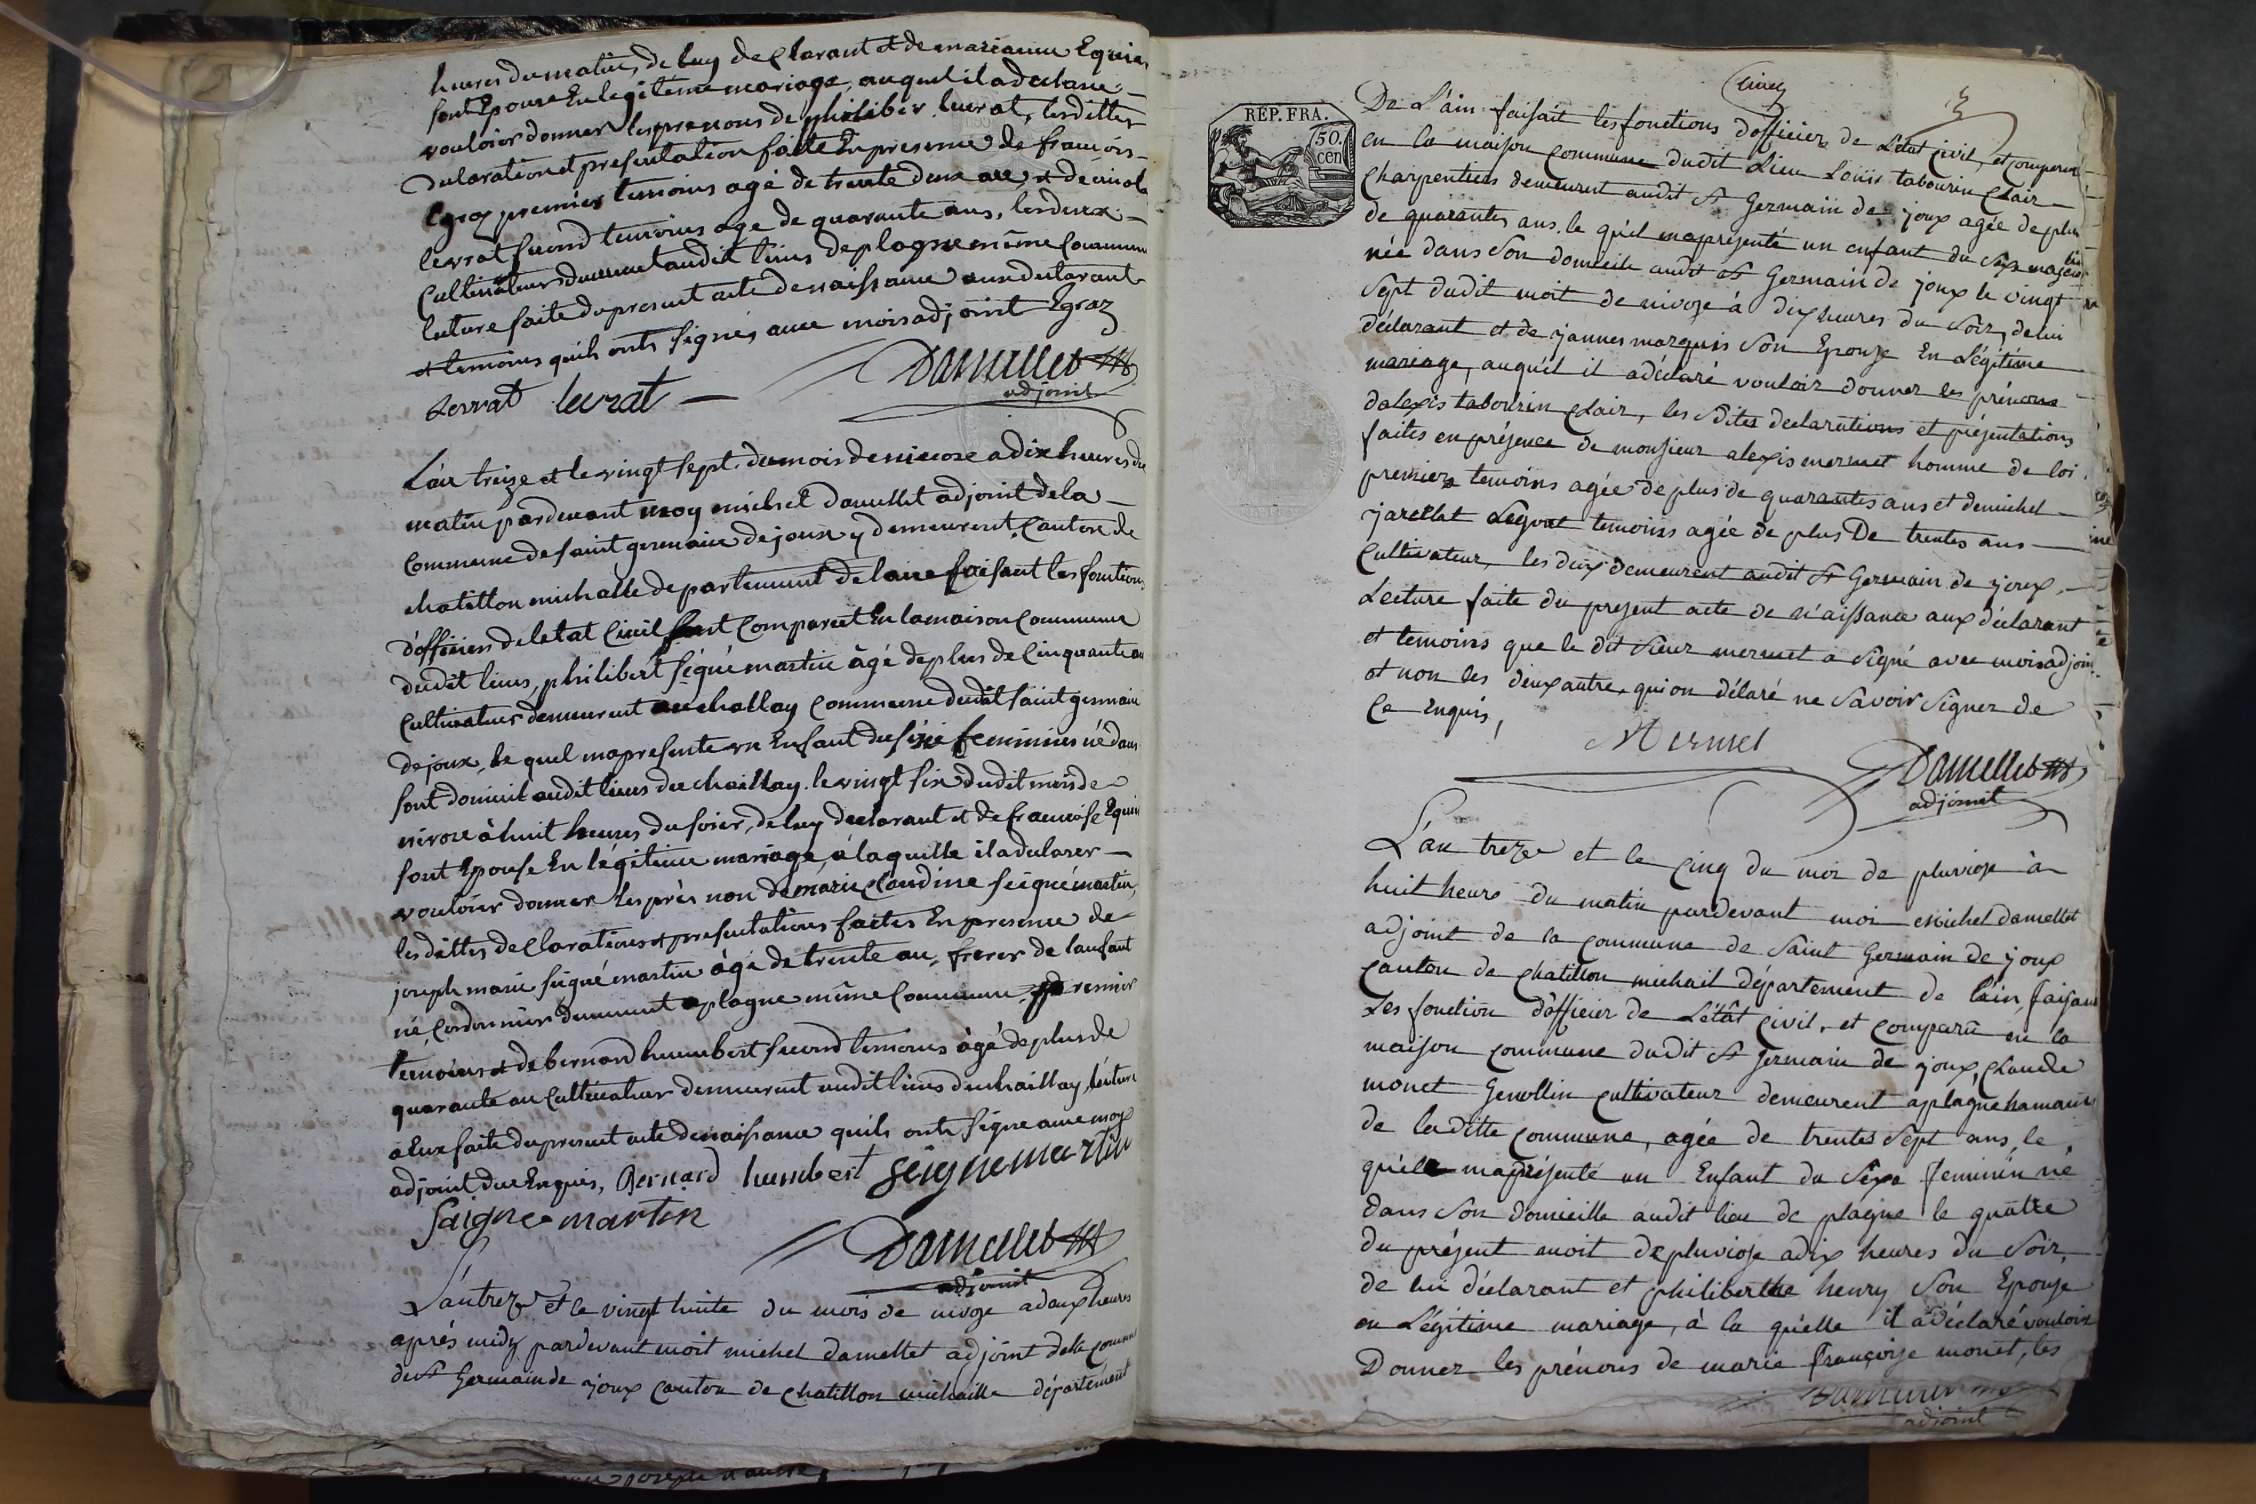 heures du matin, de luy declarant et de marianne Equin
sont Epouse En legiteme mariage, auquel il a declare
vouloir donner les prenons de philiber levrat, lesdittes
declaration et presentation faite En presence de francois
Egraz premier temoins agé de trente deux ans, et de
levrat second temoins age de quarante ans, les deux
Cultivateurs demeurant audit lieus de plagne même Commune
lecture faite du present acte de naissance aux declarant
et temoins quils onts signés avec mois adjoint Egraz
Levrat levrat
Damellet
adjoint
L'an treize et le vingt sept du mois de nivose a dix heures du
matin pardevant moy michel Damellet adjoint de la
Commune de saint germain de joux y demeurent, Canton de
chatillon michalle departement de laine faisant les fonctions
d'officiers de letat Civil sont Comparut En la maison Commune
dudit lieus, philibert signé martin âgé de plus de Cinquante an
Cultivateur demeurent au challay Commune dudit saint germain
de joux, le quel ma presente un Enfant du sixe feminins né dans
sont domicil audit lieus du chaillay le vingt six dudit mois de
nivose à huit heures du soier, de luy declarant et de francoise Equin
sont Epouse En légitime mariage, a laquelle il a declarer
vouloier donner les près non de marie Claudine seigné martin,
les dittes declarations et presentations faites En presence de
joseph marie signé martin âgé de trente an, frerer de lanfant
né Cordonnier demeurent a plagne même Commune, premier
temoins et de bernard humbert second temoins âgé de plus de
quarante an Cultivateur demeurent audit lieus du chaillay, lecture
a Eux faite du present acte de naissance quils onts signe avec moy
adjoint due Enquis, Bernard humbert seignemartin
Saigne martin
Damellet
adjoint
L'an treze et le vingt huite du mois de nivoze a deux heures
aprés midy pardevant moit michel damellet adjoint de la commune
de St Germain de joux canton de chatillon michaille département
Cinq
REP. FRA.
50.
cen
De L'ain faisait les fonctions d'officier de L'état Civil, et comparu
en la maison commune dudit Lieu Louis tabourin Clair
charpentiers demeurent audit St Germain de joux agée de plus
de quarantes ans. le qu'el ma présenté un enfant du sexe masculin
née dans son domicile audit St Germain de joux le vingt
Sept dudit moit de nivoze à dix heures du Soir, de lui
déclarant et de jannes marquis Son Epouze En Légitime
mariage, auquél il a déclaré vouloir donner les prénons
dalexis tabourin clair, les dites declarations et présentations
faites en présence de monsieur alexis mermet homme de loi
premiere temoins agée de plus de quarantes ans et de michel
jarellat Segont temoins agée de plus De trentes ans
Cultivateur, les deux demeurent audit St Germain de joux,
Lecture faite du present acte de n'aissance aux déclarant
et temoins que le dit Sieur mermet a Signé avec mois adjoint
et non les deux autre, qui on délaré ne Savoir Signez de
Ce Enquis,
Mermet
Damellet
adjoint
L'an treze et le Cinq du moi de pluvioze à
huit heure du matin pardevant moi michel damellet
adjoint de la commune de Saint Germain de joux
Canton de chatillon michail département de l'ain, faisant
Les fonction d'officier de L'état Civil, et comparû én la
maison commune dudit St Germain de joux, Claude
monet Genollin cultivateur demeurent a plagne hamaux
de laditte commune, agée de trentes Sept ans, le
qu'el ma présenté un Enfant du Séxe feminin né
dans Son domicille audit lieu de plagne le quatre
du présent moit de pluvioze a dix heures du Soir,
de lui déclarant et philiberthe henry Son Epouze
en Légitime mariage, à la qu'elle il a déclaré vouloir
Donner les prénons de marie françoize monet, les
adjoint